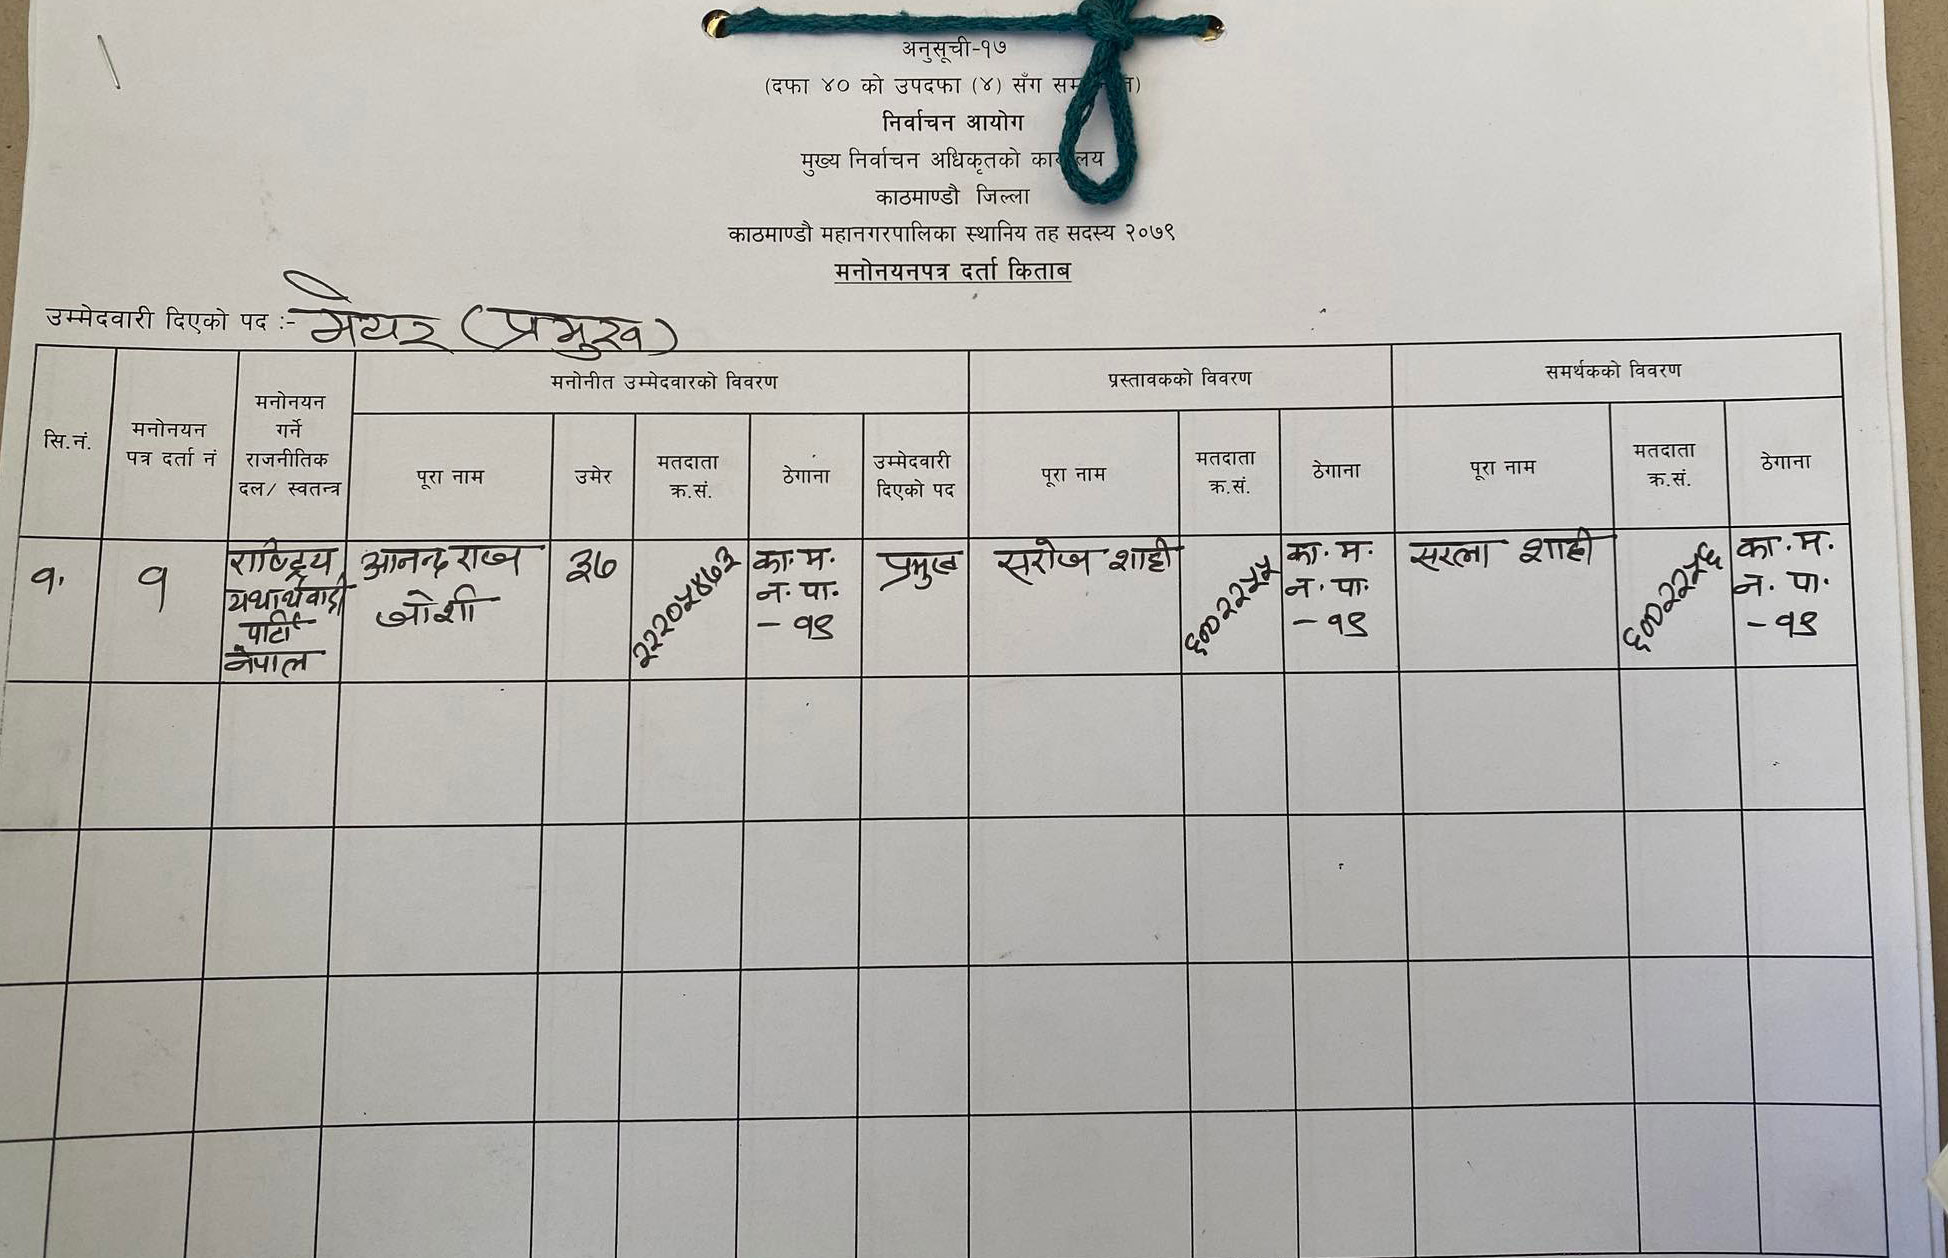 अनुसूची-१७
(दफा ४० को उपदफा (४) सँग
निर्वाचन आयोग
मुख्य निर्वाचन अधिकृतको कार्यालय
काठमाण्डौ जिल्ला
काठमाण्डौ महानगरपालिका स्थानिय तह सदस्य २०७९
मनोनयनपत्र दर्ता किताब
उम्मेदवारी दिएको पद :- मेयर (प्रमुख)
सि.नं.
मनोनयन
पत्र दर्ता नं
मनोनयन
गर्ने
राजनीतिक
दल/ स्वतन्त्र
मनोनीत उम्मेदवारको विवरण
प्रस्तावकको विवरण
समर्थकको विवरण
पूरा नाम
उमेर
मतदाता
क्र.सं.
ठेगाना
उम्मेदवारी
दिएको पद
पूरा नाम
मतदाता
क्र.सं.
ठेगाना
पूरा नाम
मतदाता
क्र.सं.
ठेगाना
१.
१
राष्ट्रिय
यथार्थवादी
पार्टी
नेपाल
आनन्द राज
जोशी
३७
२२२०५४७३
का. म.
न. पा.
- १९
प्रमुख
सरोज शाही
६००२२५५
का. म.
न. पा.
- १९
सरला शाही
६००२२५६
का. म.
न. पा.
- १९